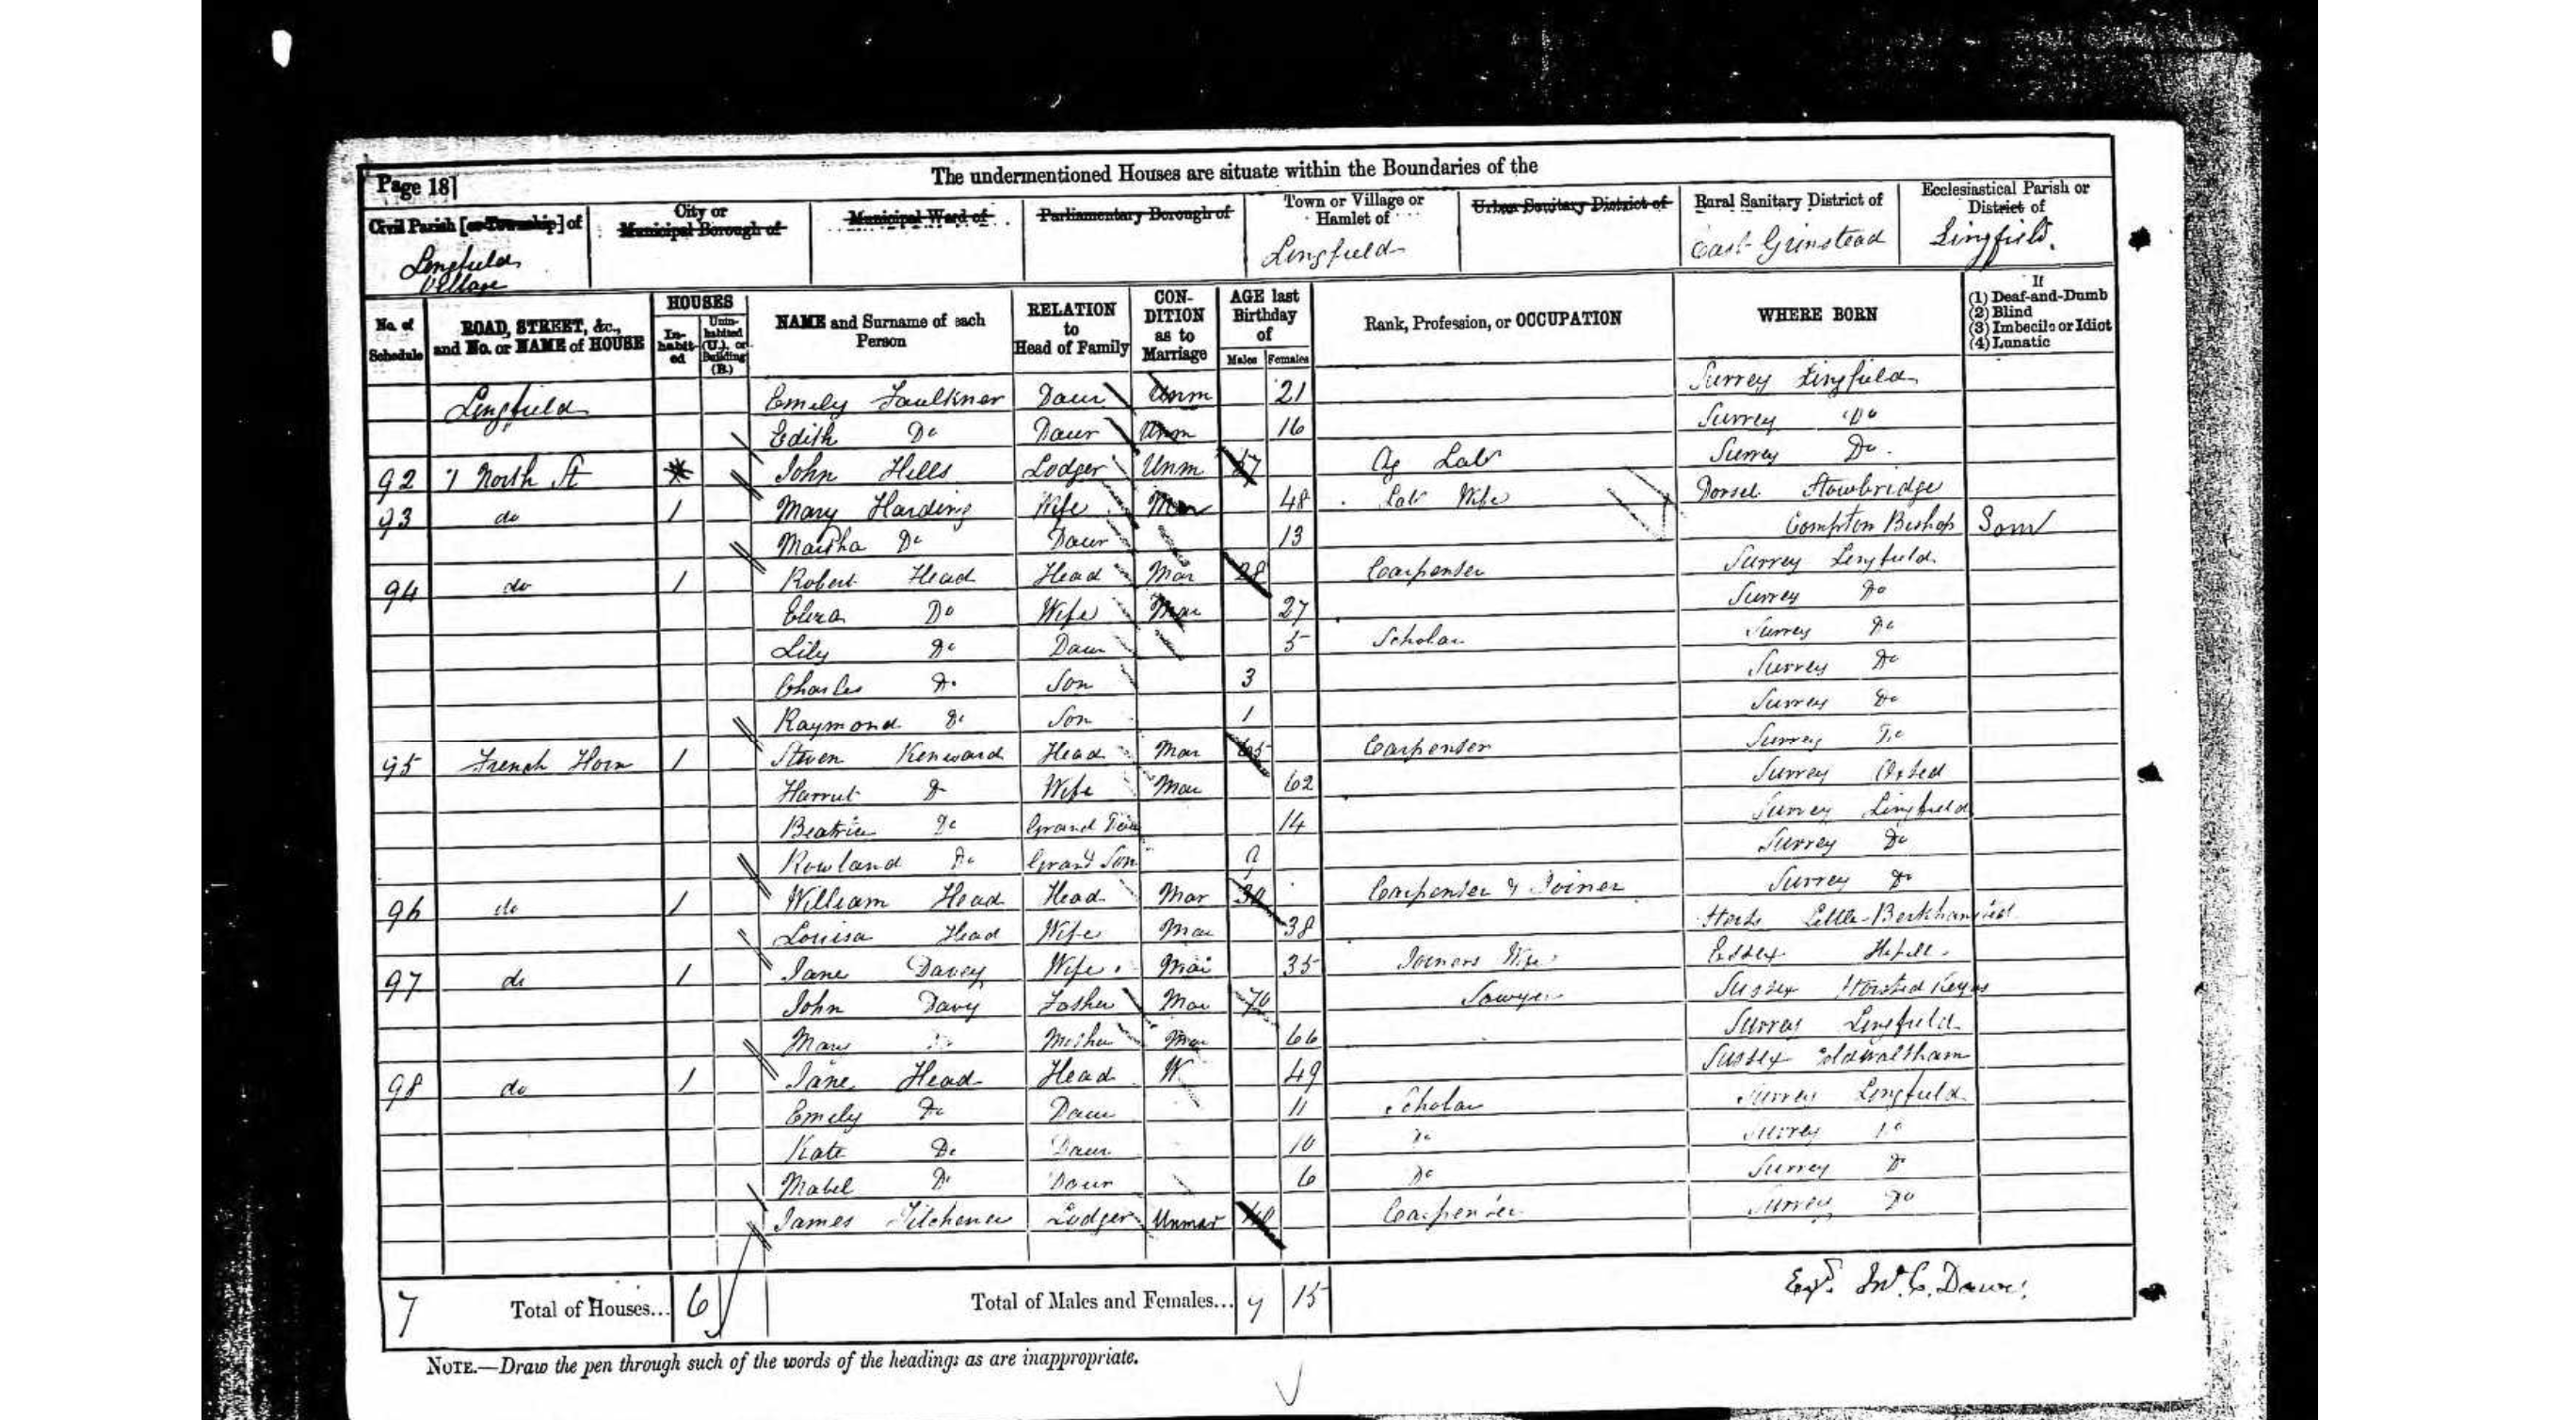 The undermentioned Houses are situate within the Boundaries of the
Page 18]
Civil Parish [or Township] of
City or Municipal Borough of
Municipal Ward of
Parliamentary Borough of
Town or Village or Hamlet of
Urban Sanitary District of
Rural Sanitary District of
Ecclesiastical Parish or District of
Lingfield Village
Lingfield
East Grinstead
Lingfield.
No. of Schedule
ROAD, STREET, &c., and No. or NAME of HOUSE
HOUSES
In-habit-ed
Unin-habited (U.), or Building (B.)
NAME and Surname of each Person
RELATION to Head of Family
CON-DITION as to Marriage
AGE last Birthday of
Males Females
Rank, Profession, or OCCUPATION
WHERE BORN
If
(1) Deaf-and-Dumb
(2) Blind
(3) Imbecile or Idiot
(4) Lunatic
Lingfield Emily Faulkner Daur Unm 21 Surrey Lingfield
Edith Do Daur Unm 16 Surrey Do
92 North St John Hills Lodger Unm Ag Lab Surrey Do
93 do 1 Mary Harding Wife Mar 48 Lab Wife Dorset Stowbridge
Martha Do Daur 13 Compton Bishop Som
94 do 1 Robert Head Head Mar 28 Carpenter Surrey Lingfield
Eliza Do Wife Mar 27 Surrey Do
Lily Do Daur 5 Scholar Surrey Do
Charles Do Son 3 Surrey Do
Raymond Do Son 1 Surrey Do
95 French Horn 1 Steven Kenward Head Mar 65 Carpenter Surrey Do
Harriet Do Wife Mar 62 Surrey Oxted
Beatrice Do Grand 14 Surrey Lingfield
Rowland Do Grand Son 9 Surrey Do
96 do 1 William Head Head Mar Carpenter & Joiner Surrey Do
Louisa Head Wife Mar 38 Herts Little Berkhamsted
97 do 1 Jane Davey Wife Mar 35 Joiners Wife Essex
John Davy Father Mar 70 Sawyer Sussex Horsted Keynes
Mary Do Mother Mar 66 Surrey Lingfield
98 do 1 Jane Head Head W 49 Sussex Coldwaltham
Emily Do Daur 11 Scholar Surrey Lingfield
Kate Do Daur 10 Do Surrey Do
Mabel Do Daur 6 Do Surrey Do
James Lodger Unmar Carpenter Surrey Do
7 Total of Houses... 6 Total of Males and Females... 9 15
NOTE.—Draw the pen through such of the words of the headings as are inappropriate.